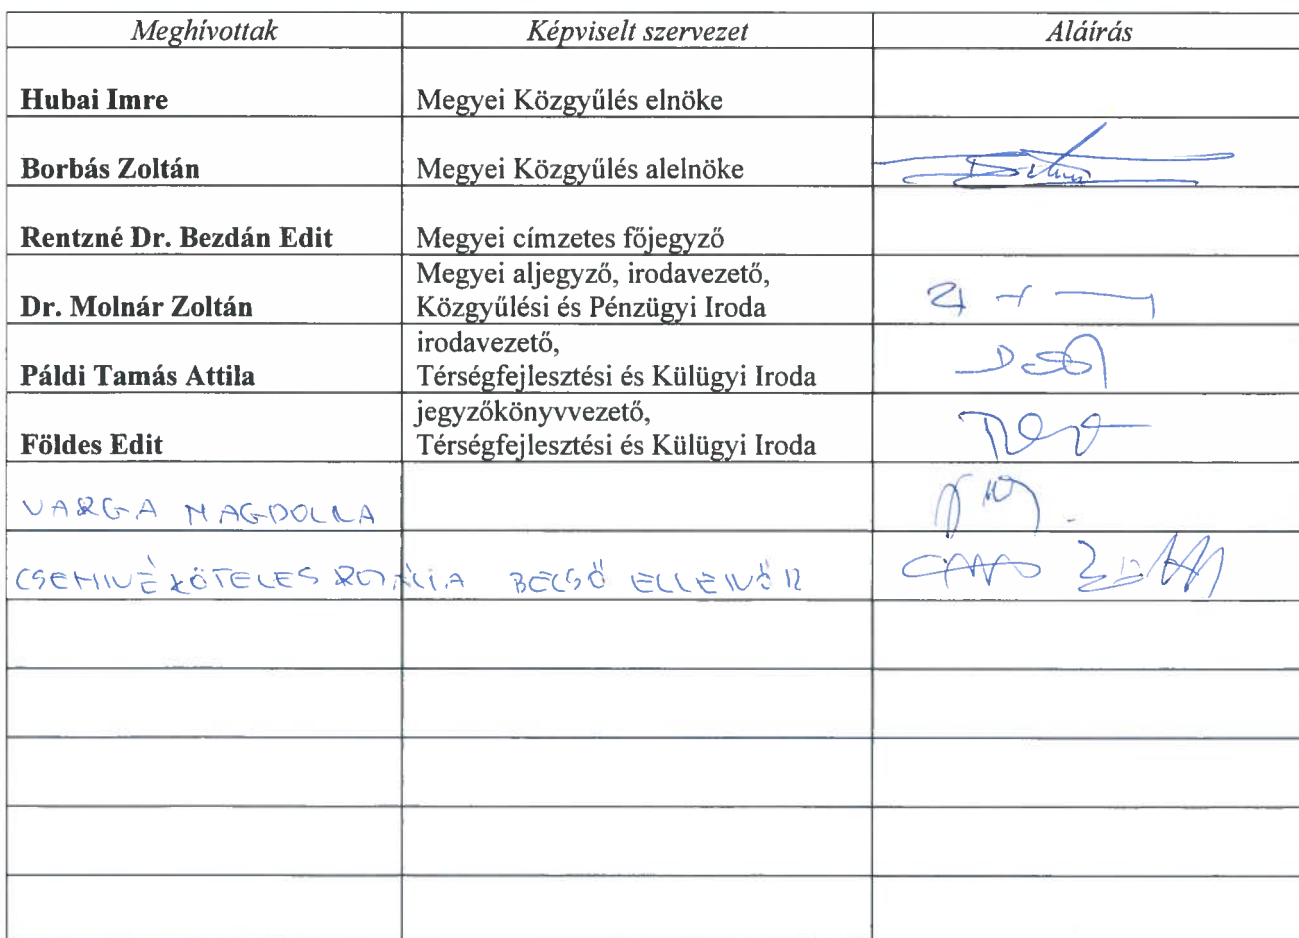 Meghívottak Képviselt szervezet Aláírás
Hubai Imre Megyei Közgyűlés elnöke
Borbás Zoltán Megyei Közgyűlés alelnöke
Rentzné Dr. Bezdán Edit Megyei címzetes főjegyző
Megyei aljegyző, irodavezető,
Dr. Molnár Zoltán Közgyűlési és Pénzügyi Iroda
irodavezető,
Páldi Tamás Attila Térségfejlesztési és Külügyi Iroda
jegyzőkönyvvezető,
Földes Edit Térségfejlesztési és Külügyi Iroda
VARGA MAGDOLNA
CSEHNÉ KÖTELES ROZÁLIA BELSŐ ELLENŐR